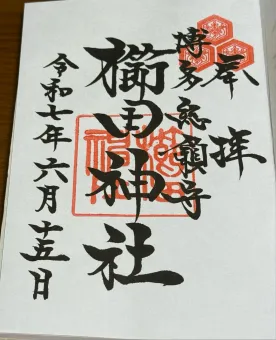 奉拝
博多総鎮守
櫛田神社
令和七年六月十五日